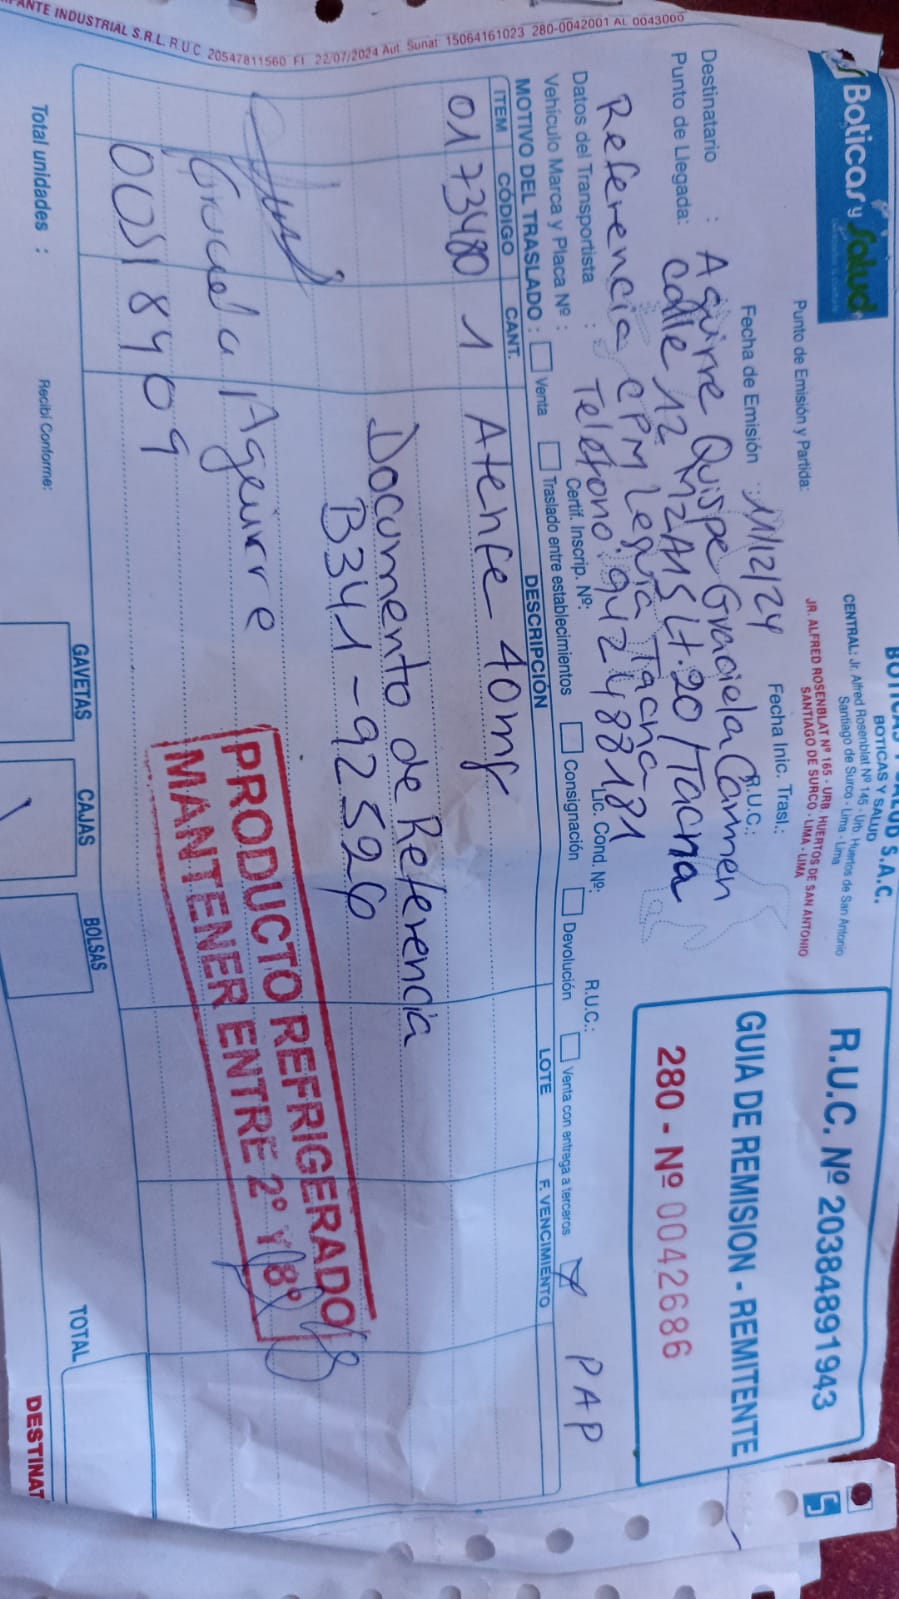 BOTICAS Y SALUD S.A.C.
BOTICAS Y SALUD
CENTRAL: Jr. Alfred Rosenblat Nº 145 - Urb. Huertos de San Antonio
Santiago de Surco - Lima - Lima
JR. ALFRED ROSENBLAT Nº 165 - URB. HUERTOS DE SAN ANTONIO
SANTIAGO DE SURCO - LIMA - LIMA
Boticas y Salud
R.U.C. Nº 20384891943
GUIA DE REMISION - REMITENTE
280 - Nº 0042686
Punto de Emisión y Partida:
Fecha de Emisión : 11/12/24 Fecha Inic. Trasl.:
Destinatario : Aguirre Quispe Graciela Carmen R.U.C.:
Punto de Llegada: Calle 12 MzA15 Lt. 20/Tacna
Referencia CPM Leguia Tacna
Datos del Transportista : Telefono: 912488181 R.U.C.:
Vehículo Marca y Placa Nº : Certif. Inscrip. Nº: Lic. Cond. Nº:
MOTIVO DEL TRASLADO : Venta Traslado entre establecimientos Consignación Devolución Venta con entrega a terceros PAP
ITEM CÓDIGO CANT. DESCRIPCIÓN LOTE F. VENCIMIENTO
01 73480 1 Atenfe 40mg
Documento de Referencia
B341-92526
Graciela Aguirre
00518409
PRODUCTO REFRIGERADO
MANTENER ENTRE 2° Y 8°
GAVETAS CAJAS BOLSAS TOTAL
Total unidades : Recibí Conforme:
DESTINAT
INDUSTRIAL S.R.L. R.U.C. 20547811560 F.I. 22/07/2024 Aut. Sunat 15064161023 280-0042001 AL 0043000